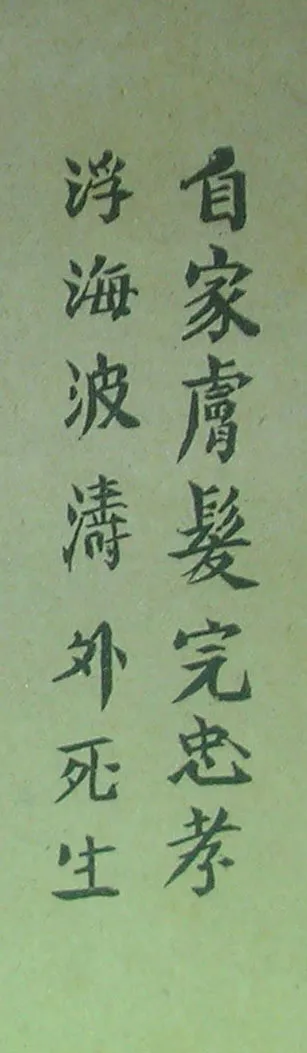 自家膚髮完忠孝
浮海波濤外死生